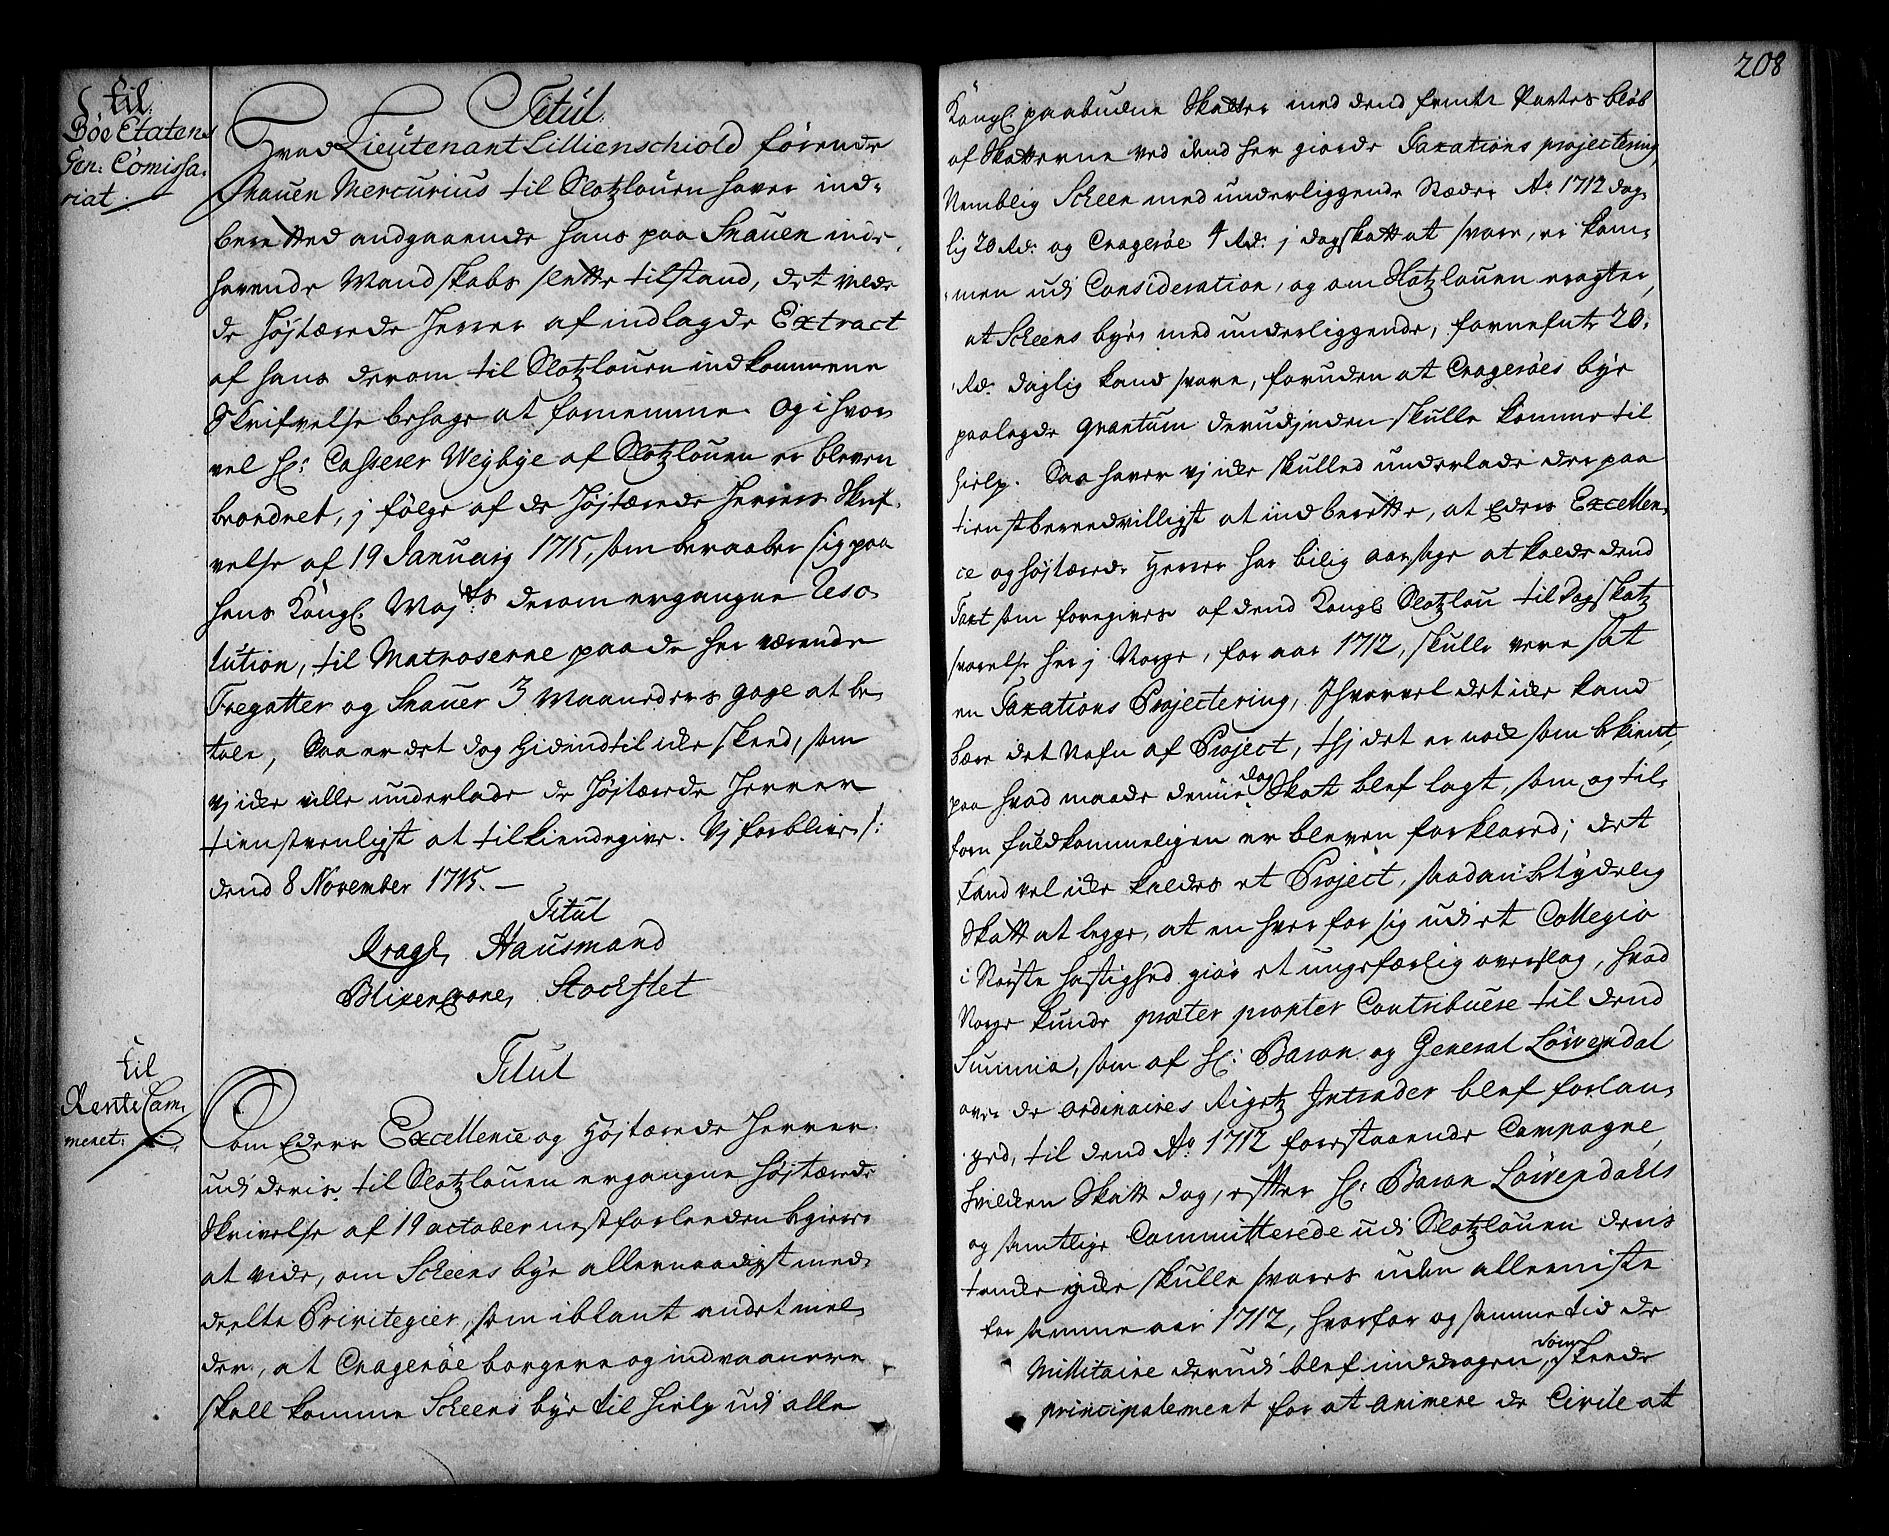 til
Søe Etatens
Gen: Comissa-
riat.
Titul.
Hvad Lieutenant Lillienschiold förende
Snauen Mercurius til Slotzlouen haver ind-
berettted andgaaende hans paa Snauen inde-
havende Mandskabs slette tilstand, det vilde
de Højtærede Herrer af indlagde Extract
af hans derom til Slotzlouen indkommene
Skrifvelse behage at fornemme. Og i hvor
vel Hr: Casserer Weybye af Slotzlouen er bleven
beordret, j følge af de Højtærede Herrers Skrif-
velse af 19 Januarij 1715, som beraaber sig paa
hans Köngl. Maj:ts derom ergangne Reso-
lution, til Matroserne paa de her værende
Fregatter og Snauer 3 Maaneders gage at be-
tale, Saa er det dog hidindtil icke skeed, som
vj icke ville underlade de Højtærede Herrer
tienstvenligst at tilkiendegive. Vj forblive /:
dend 8 November 1715. —
Titul
Kragh, Hausmand
Blixencrone, Stockflet
til
Rente Cam-
meret:
Titul
Som Eders Excellence og Højtærede Herrer
udi deris til Slotzlouen ergangne Højtærede
Skrivelse af 19 october nestforleeden begierer
at vide, om Scheens bye allernaadigst med-
deelte Privilegier, som iblant andet mel-
der, at Cragerøe borgere og indvaanere
skall komme Scheens bye til hielp udi alle
208
Kongl: paabudne Skatter med dend femte Partes beløb
af Skatterne ved dend her giorde Taxations projectering
Nemblig Scheen med underliggende Stæder Ao 1712 dag-
lig 20 Rd: og Cragerøe 4 Rd: j dagskatt at svare, er kom-
men udi Consideration, og om Slotzlouen eragter,
at Scheens bye, med underliggende, fornefnte 20:
Rd: daglig kand svare, foruden at Cragerøes bye
paalagde qvantum derudjnden skulle komme til
hielp. Saa haver vj icke skulled underlade der paa
tienstbereedvilligst at indberette, at Eders Excellen-
ce og højtærede Herrer har bilig aarsage at kalde dend
Taxt som foregives af dend Kongl: Slotzlou til Dagskatz
svarelse her j Norge, for aar 1712, skulle vere sat
en Taxations Projectering, Ihvorvel det icke kand
bære det Nafn af Project, thj det er nock som bekient,
paa hvad maade denne dag Skatt blef lagt, som og til-
forn fuldkommeligen er bleven forklared; det
kand vel icke kaldes et Project, saadan betydelig
Skatt at legge, at en hver for sig udi et Collegio
i Største hastighed giør et ungefærlig overslag, hvad
Norge kunde præter propter Contribuere til dend
Summa, som af Hr: Baron og General Löwendal
over de ordinaires Rigetz Intrader blef forlan-
ged, til dend Ao 1712 forestaaende Campagne,
Hvilcken Skatt dog, efter Hr: Baron Löwendahls
og samtlige Committerede udi Slotzlouen deris
tancke icke skulle svares uden alleeniste
for samme aar 1712, hvorfor og samme tid de
Millitaire derudi blef inddragen, som skeede
principalement for at animere de Civile at